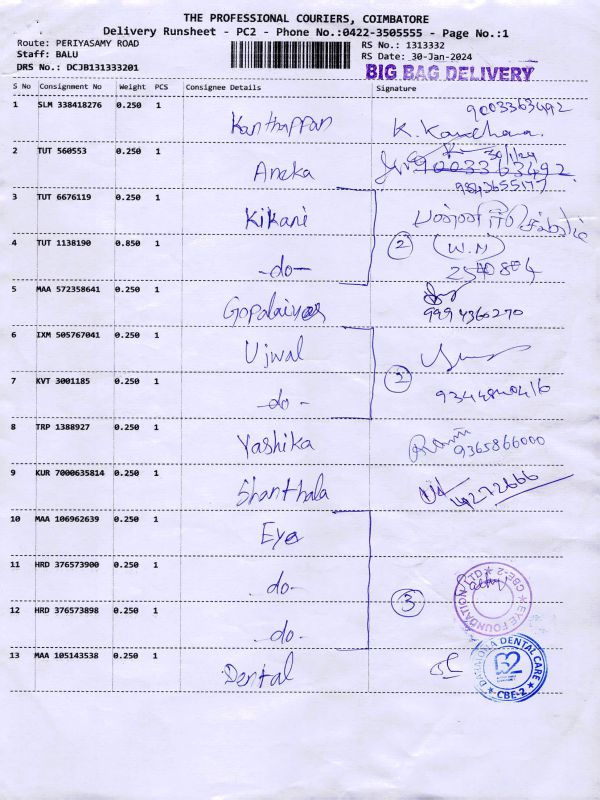 THE PROFESSIONAL COURIERS, COIMBATORE
Delivery Runsheet - PC2 - Phone No.:0422-3505555 - Page No.:1
Route: PERIYASAMY ROAD
Staff: BALU
DRS No.: DCJB131333201
RS No.: 1313332
RS Date: 30-Jan-2024
BIG BAG DELIVERY
S No Consignment No Weight PCS Consignee Details Signature
1 SLM 338418276 0.250 1 Kanthappan 9003363492
2 TUT 560553 0.250 1 Aneka 30/1/24
9003363492
9843655177
3 TUT 6676119 0.250 1 Kikani
4 TUT 1138190 0.850 1 -do- 2 (W.N)
5 MAA 572358641 0.250 1 Gopalaiyer 9994360270
6 IXM 505767041 0.250 1 Ujwal
7 KVT 3001185 0.250 1 -do- 2
8 TRP 1388927 0.250 1 Yashika 9365866000
9 KUR 7000635814 0.250 1 Shanthala
10 MAA 106962639 0.250 1 Eye
11 HRD 376573900 0.250 1 -do-
12 HRD 376573898 0.250 1 -do- 3
EYE FOUNDATION LTD ★ CBE-2 ★
13 MAA 105143538 0.250 1 Dental
DENTAL CARE
★ CBE-2 ★